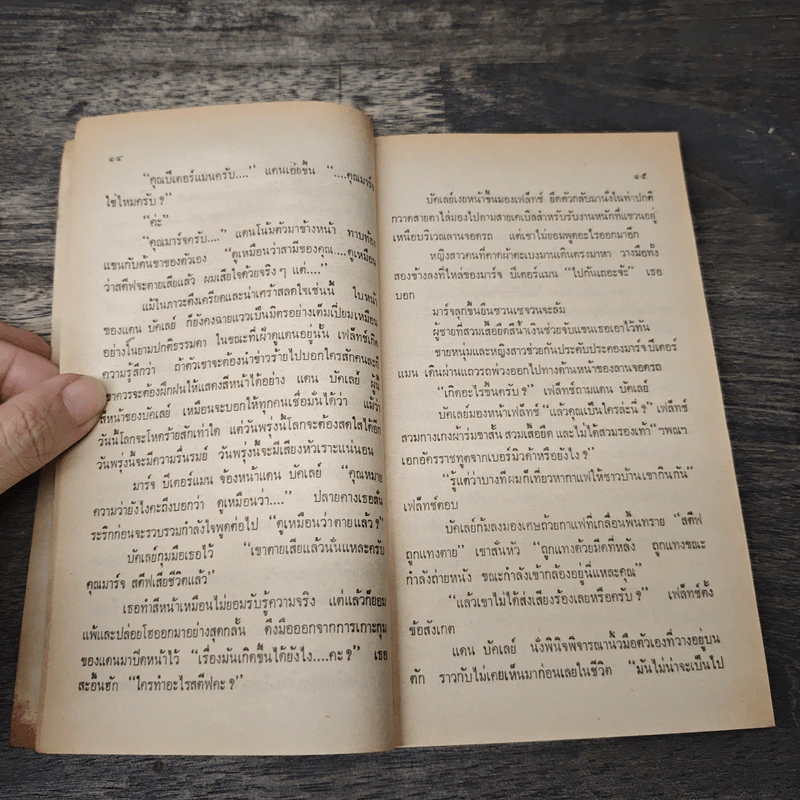 ๑๔
“คุณบีเตอร์แมนครับ....” แดนเอ่ยขึ้น “....คุณมาร์จ
ใช่ไหมครับ ?”
“ค่ะ”
“คุณมาร์จครับ....” แดนโน้มตัวมาข้างหน้า ทาบท้อง
แขนกับต้นขาของตัวเอง “ดูเหมือนว่าสามีของคุณ....ดูเหมือน
ว่าสตีฟจะตายเสียแล้ว ผมเสียใจด้วยจริง ๆ แต่....”
แม้ในภาวะตึงเครียดและน่าเศร้าสลดใจเช่นนี้ ใบหน้า
ของแดน บัคเลย์ ก็ยังคงฉายแววเป็นมิตรอย่างเต็มเปี่ยมเหมือน
อย่างในยามปกติธรรมดา ในขณะที่เฝ้าดูแดนอยู่นั้น เฟล็ทช์เกิด
ความรู้สึกว่า ถ้าตัวเขาจะต้องนำข่าวร้ายไปบอกใครสักคนละก็
เขาควรจะต้องฝึกฝนให้แสดงสีหน้าได้อย่าง แดน บัคเลย์ ผู้นี้
สีหน้าของบัคเลย์ เหมือนจะบอกให้ทุกคนเชื่อมั่นได้ว่า แม้ว่า
วันนี้โลกจะโหดร้ายสักเท่าใด แต่วันพรุ่งนี้โลกจะต้องสดใสได้อีก
วันพรุ่งนี้จะมีความรื่นรมย์ วันพรุ่งนี้จะมีเสียงหัวเราะแน่นอน
มาร์จ บีเตอร์แมน จ้องหน้าแดน บัคเลย์ “คุณหมาย
ความว่ายังไงคะถึงบอกว่า ดูเหมือนว่า....” ปลายคางเธอสั่น
ระริกก่อนจะรวบรวมกำลังใจพูดต่อไป “ดูเหมือนว่าตายแล้ว ?”
บัคเลย์กุมมือเธอไว้ “เขาตายเสียแล้วนั่นแหละครับ
คุณมาร์จ สตีฟเสียชีวิตแล้ว”
เธอทำสีหน้าเหมือนไม่ยอมรับรู้ความจริง แต่แล้วก็ยอม
แพ้และปล่อยโฮออกมาอย่างสุดกลั้น ดึงมือออกจากการเกาะกุม
ของแดนมาปิดหน้าไว้ “เรื่องมันเกิดขึ้นได้ยังไง....คะ ?” เธอ
สะอื้นฮัก “ใครทำอะไรสตีฟคะ ?”
๑๕
บัคเลย์เงยหน้าขึ้นมองเฟล็ทช์ ยืดตัวกลับมานั่งในท่าปกติ
กวาดสายตาไล่มองไปตามสายเคเบิลสำหรับรับงานหนักที่แขวนอยู่
เหนือบริเวณลานจอดรถ แต่เขาไม่ยอมพูดอะไรออกมาอีก
หญิงสาวคนที่คาดผ้าตะเบงมานเดินตรงมาหา วางมือทั้ง
สองข้างลงที่ไหล่ของมาร์จ บีเตอร์แมน “ไปกันเถอะจ้ะ” เธอ
บอก
มาร์จลุกขึ้นยืนซวนเซจวนจะล้ม
ผู้ชายที่สวมเสื้อยืดสีน้ำเงินช่วยจับแขนเธอเอาไว้ทัน
ชายหนุ่มและหญิงสาวช่วยกันประคับประคองมาร์จ บีเตอร์
แมน เดินผ่านแถวรถพ่วงออกไปทางด้านหน้าของลานจอดรถ
“เกิดอะไรขึ้นครับ ?” เฟล็ทช์ถามแดน บัคเลย์
บัคเลย์มองหน้าเฟล็ทช์ “แล้วคุณเป็นใครล่ะนี่ ?” เฟล็ทช์
สวมกางเกงผ้าร่มขาสั้น สวมเสื้อยืด และไม่ได้สวมรองเท้า “ฯพณฯ
เอกอัครราชทูตจากเบอร์มิวด้าหรือยังไง ?”
“รู้แต่ว่าบางทีผมก็เที่ยวหากาแฟให้ชาวบ้านเขากินกัน”
เฟล็ทช์ตอบ
บัคเลย์ก้มลงมองเศษถ้วยกาแฟที่เกลื่อนพื้นทราย “สตีฟ
ถูกแทงตาย” เขาสั่นหัว “ถูกแทงด้วยมีดที่หลัง ถูกแทงขณะ
กำลังถ่ายหนัง ขณะกำลังเข้ากล้องอยู่นี่แหละคุณ”
“แล้วเขาไม่ได้ส่งเสียงร้องเลยหรือครับ ?” เฟล็ทช์ตั้ง
ข้อสังเกต
แดน บัคเลย์ นั่งพินิจพิจารณานิ้วมือตัวเองที่วางอยู่บน
ตัก ราวกับไม่เคยเห็นมาก่อนเลยในชีวิต “มันไม่น่าจะเป็นไป